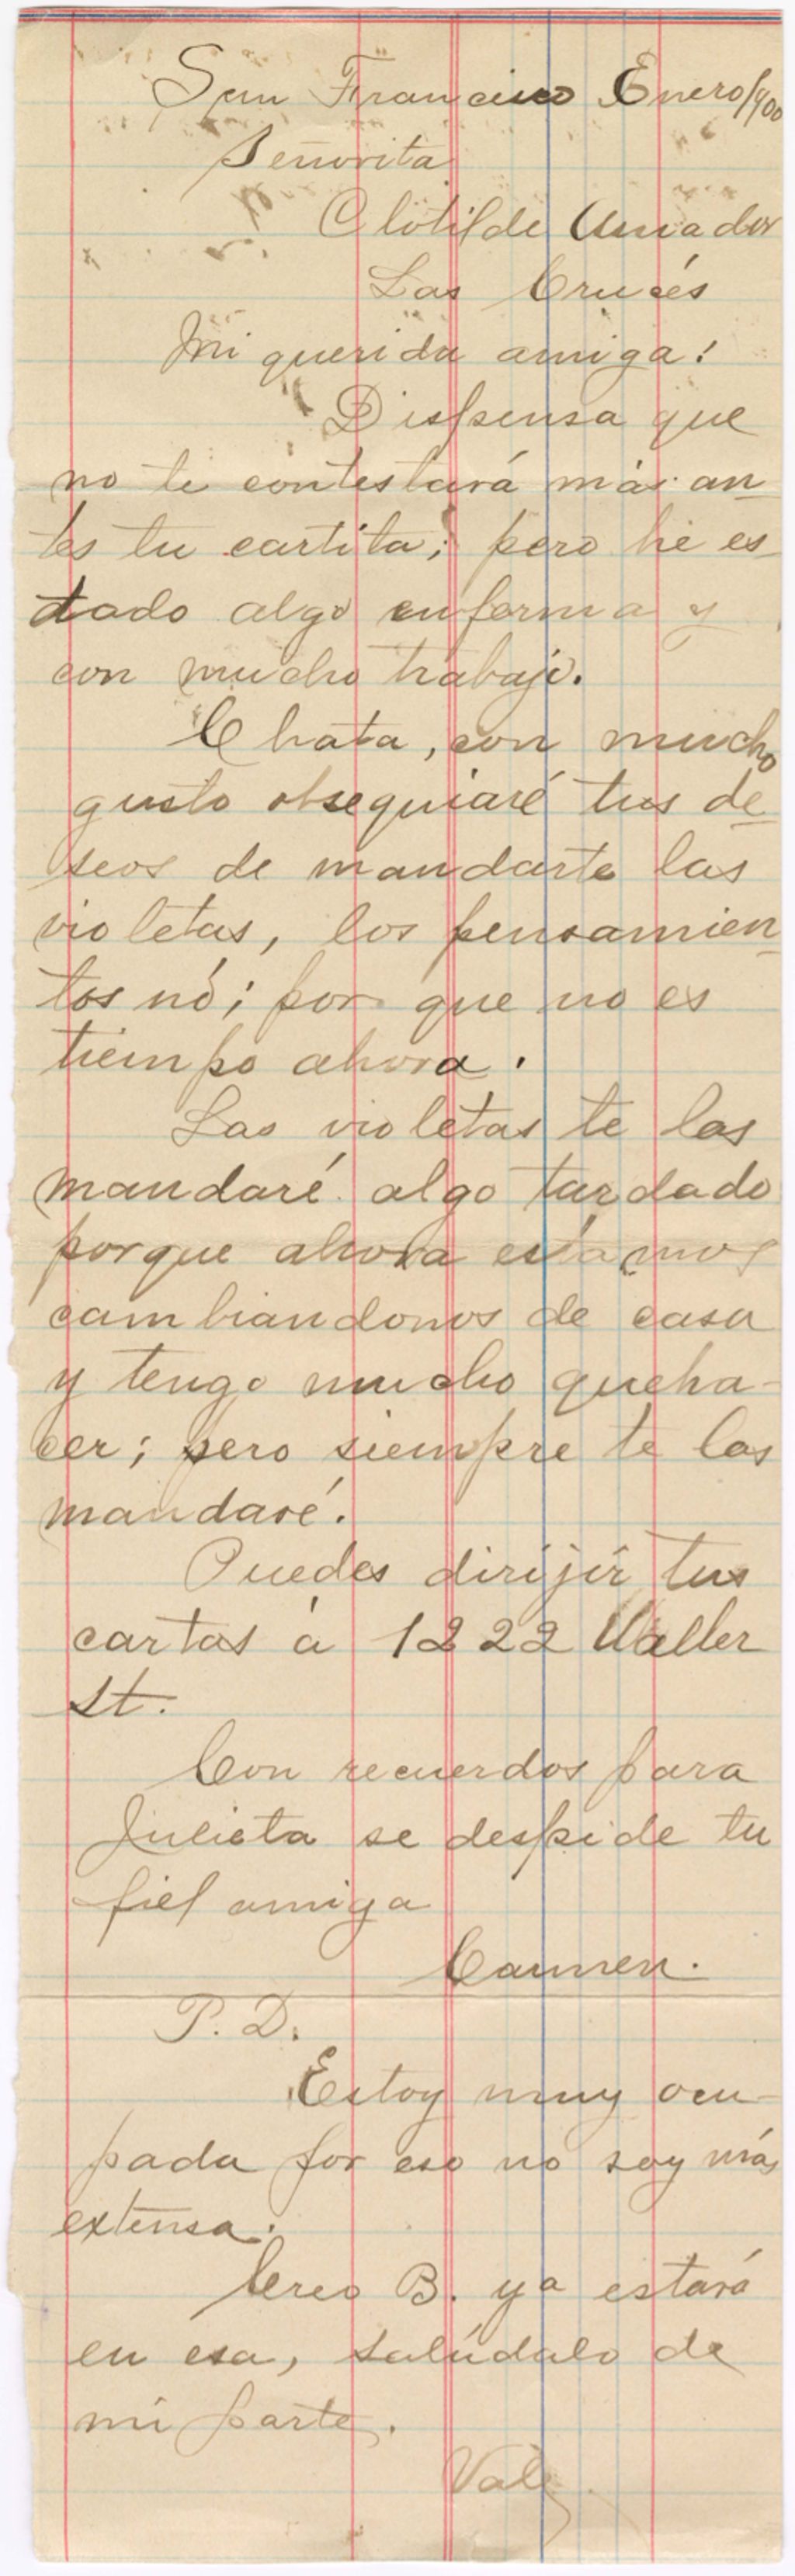 San Francisco Enero/900
Señorita
Clotilde Amador
Las Crucés
Mi querida amiga:
Dispensa que
no te contestará más an
tes tu cartita; pero he es
tado algo enferma y
con mucho trabajo.
Chata, con mucho
gusto obsequiaré tus de
seos de mandarte las
violetas, los pensamien
tos nó; por que no es
tiempo ahora.
Las violetas te las
mandaré algo tardado
porque ahora estamos
cambiandonos de casa
y tengo mucho queha-
cer; pero siempre te las
mandaré.
Puedes dirijir tus
cartas á 1222 Waller
St.
Con recuerdos para
Julieta se despide tu
fiel amiga
Carmen.
P. D.
Estoy muy ocu-
pada por eso no soy más
extensa.
Creo B. ya estará
en esa, salúdalo de
mi parte.
Vale